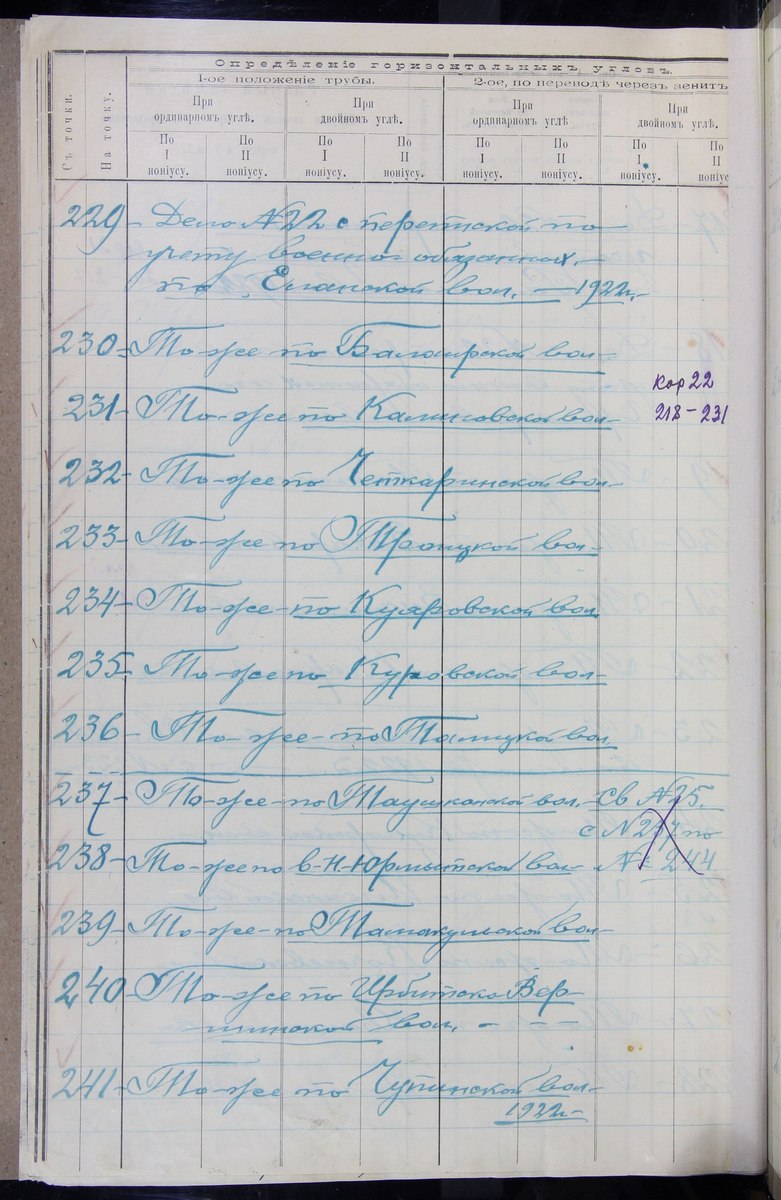 Опредѣленіе горизонтальныхъ угловъ.
1-ое положеніе трубы. 2-ое, по переводѣ черезъ зенитъ
Съ точки. На точку.
При ординарномъ углѣ. При двойномъ углѣ. При ординарномъ углѣ При двойномъ углѣ.
По I ноніусу. По II ноніусу. По I ноніусу. По II ноніусу. По I ноніусу. По II ноніусу. По I ноніусу. По II ноніус
229- Дело N 22 с перепиской по
учету военно-обязанных.-
по Еланской вол. - 1922г.-
230- То-же по Балаирской вол-
Кор 22
231- То-же по Калиновской вол- 218-231
232- То-же по Четкаринской вол-
233- То-же по Троицкой вол-
234- То-же-по Куяровской вол
235- То-же по Куровской вол-
236- То-же-по Талицкой вол.
237- То-же-по Таушканской вол.- св N 25.
с N 237 по
238- То-же по в-Н-Юрмытской вол- № 244
239- То-же-по Тамакульской вол-
240- То-же по Ирбитско Вер-
шинской вол. - - - -
241- То-же по Чупинской вол-
1922г-